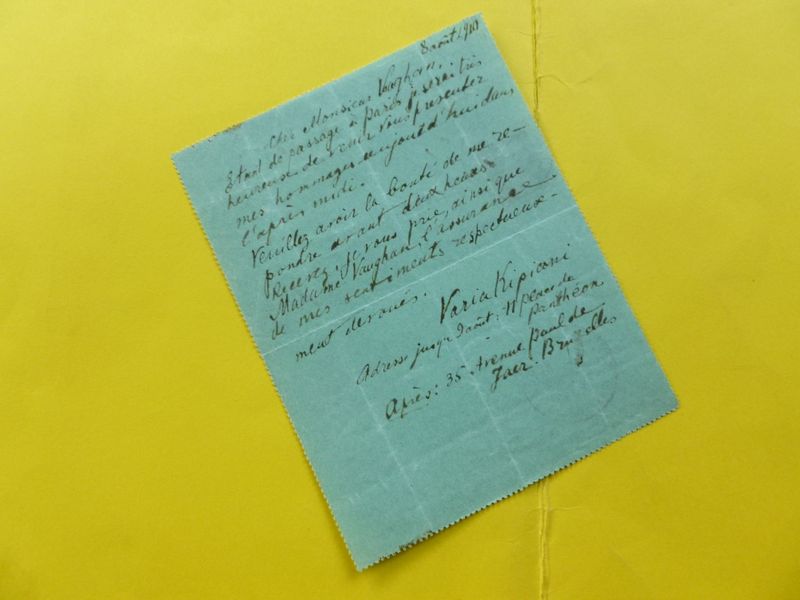 8 août 1910
Cher Monsieur Vaughan,
Etant de passage à Paris je serai très
heureuse de venir vous présenter
mes hommages aujourd'hui dans
l'après midi.
Veuillez avoir la bonté de me ré-
pondre avant deux heures
Recevez, je vous prie, ainsi que
Madame Vaughan l'assurance
de mes sentiments respectueuse-
ment dévoués.
Varia Kipiani
Adresse jusqu'à 9 août: 11 place du
Panthéon
Après: 35 Avenue Paul de
Jaer. Bruxelles